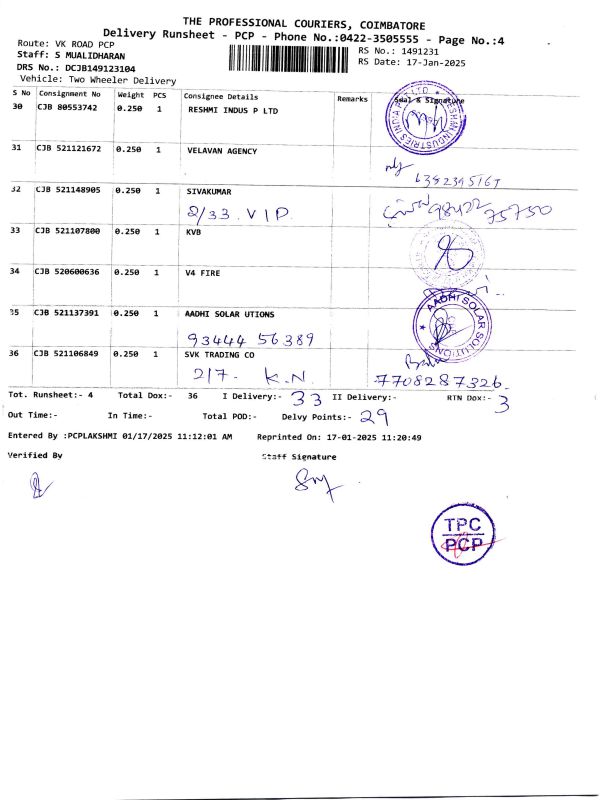 THE PROFESSIONAL COURIERS, COIMBATORE
Delivery Runsheet - PCP - Phone No.:0422-3505555 - Page No.:4
Route: VK ROAD PCP
RS No.: 1491231
Staff: S MUALIDHARAN
RS Date: 17-Jan-2025
DRS No.: DCJB149123104
Vehicle: Two Wheeler Delivery
S No Consignment No Weight PCS Consignee Details Remarks Seal & Signature
30 CJB 80553742 0.250 1 RESHMI INDUS P LTD
RESHMI INDUSTRIES INDIA P LTD
31 CJB 521121672 0.250 1 VELAVAN AGENCY
6382395167
32 CJB 521148905 0.250 1 SIVAKUMAR
2/33 VIP 98422 75750
33 CJB 521107800 0.250 1 KVB
34 CJB 520600636 0.250 1 V4 FIRE
35 CJB 521137391 0.250 1 AADHI SOLAR UTIONS
AADHI SOLAR SOLUTIONS
93444 56389
36 CJB 521106849 0.250 1 SVK TRADING CO
217- K.N. 7708287326.
Tot. Runsheet:- 4 Total Dox:- 36 I Delivery:- 33 II Delivery:- RTN Dox:- 3
Out Time:- In Time:- Total POD:- Delvy Points:- 29
Entered By :PCPLAKSHMI 01/17/2025 11:12:01 AM Reprinted On: 17-01-2025 11:20:49
Verified By Staff Signature
TPC
PCP